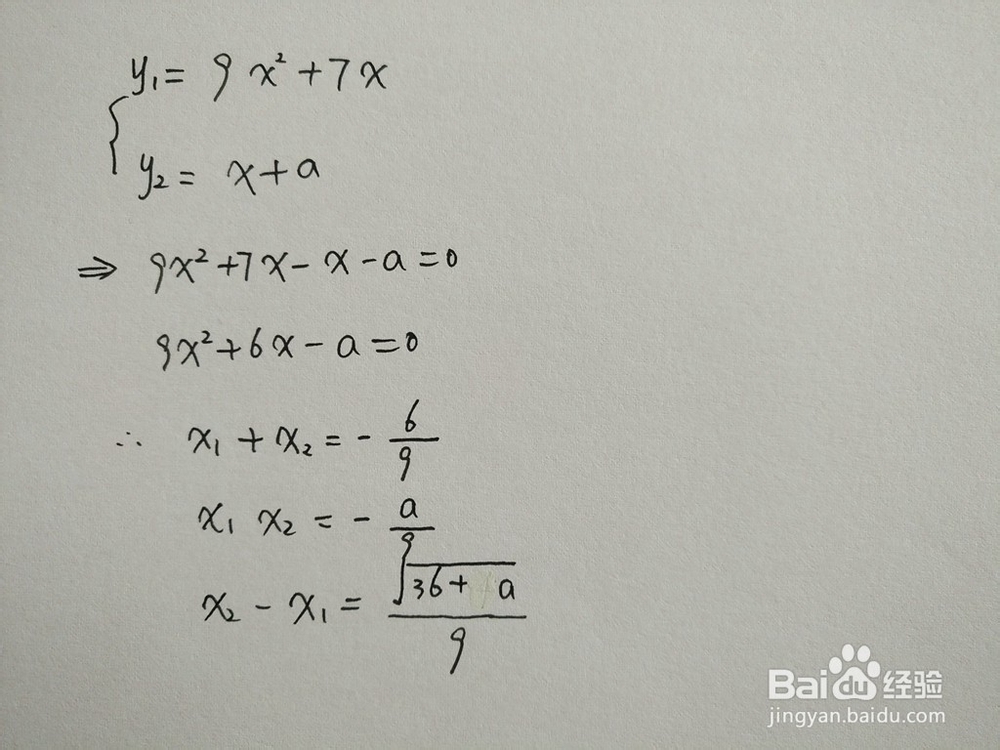 y₁= 9x²+7x
y₂= x+a
⇒ 9x²+7x-x-a=0
9x²+6x-a=0
∴ x₁+x₂=-6/9
x₁ x₂=-a/9
x₂-x₁=√(36+ a)/9
Baidu 经验
jingyan.baidu.com